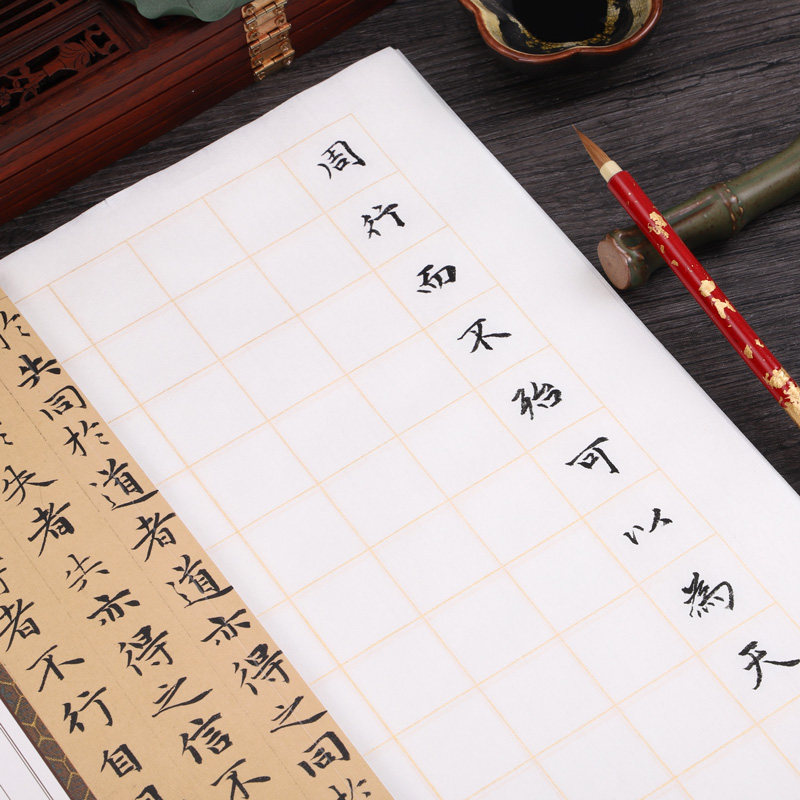 周行而不殆可以為天
於失同於道者道亦得之同於
於失者失亦得之信不
者不行自